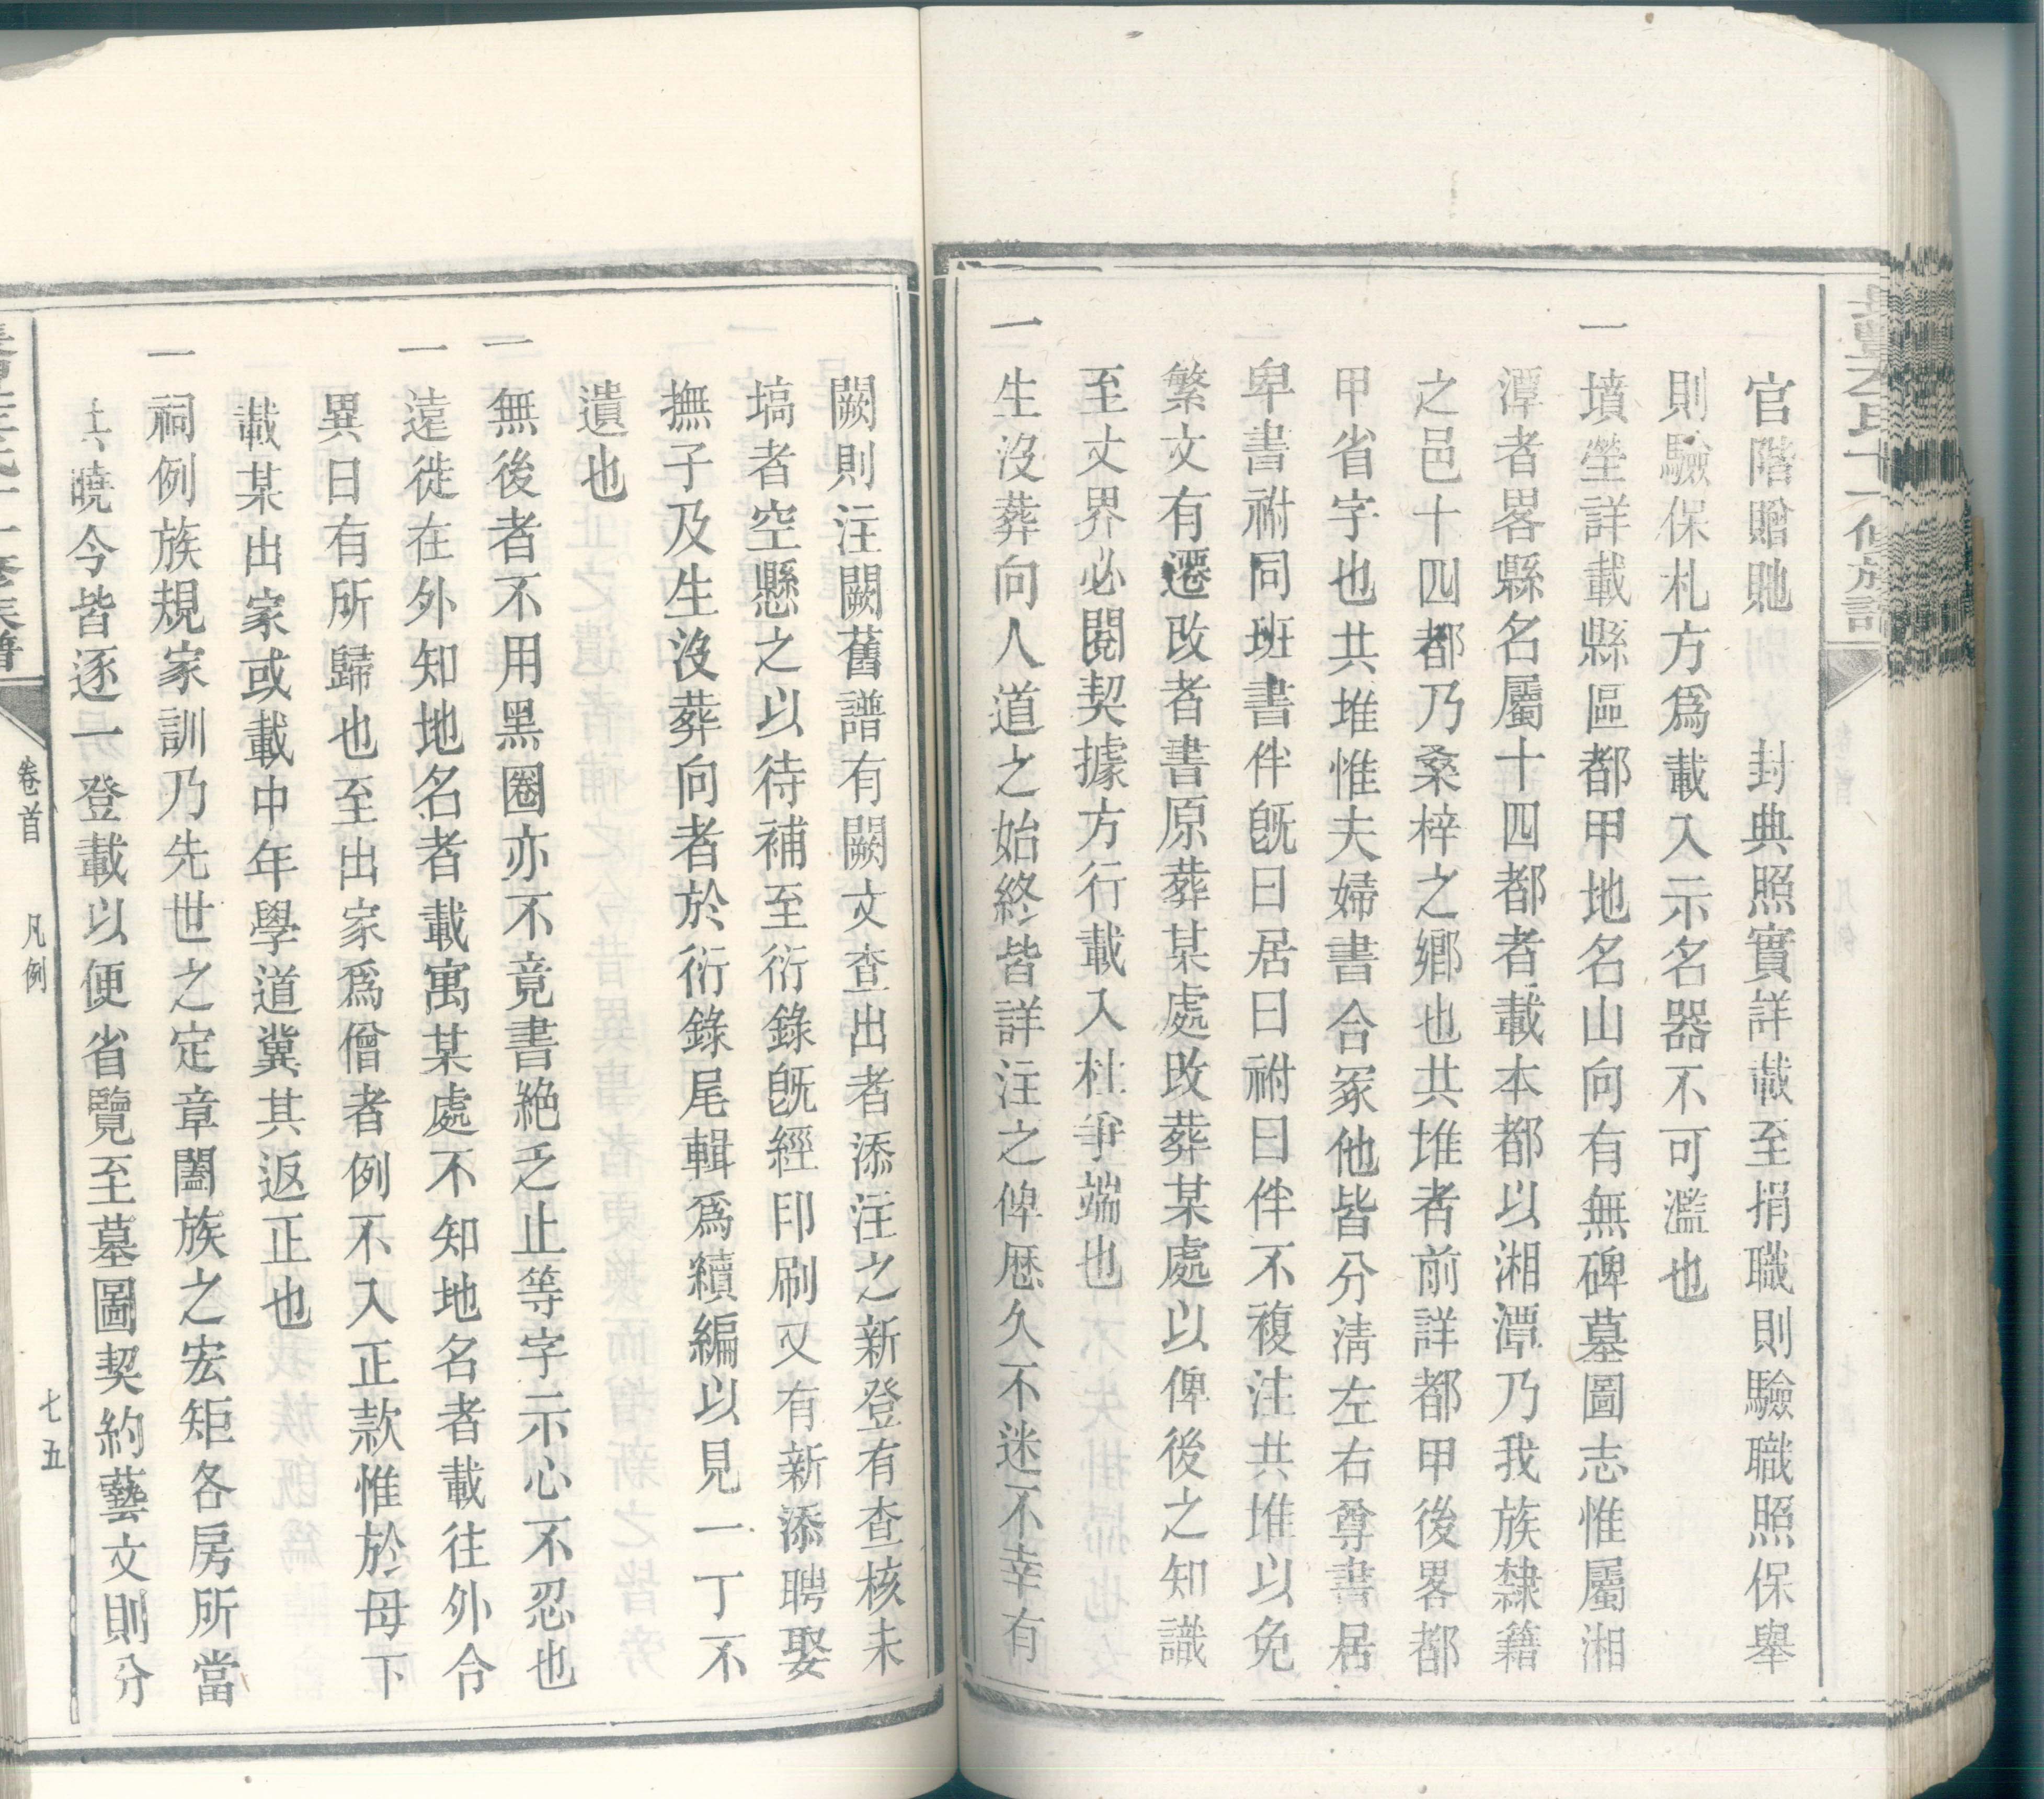 官階贈貤　封典照實詳載至捐職則驗職照保舉
則驗保札方爲載入示名器不可濫也
一墳塋詳載縣區都甲地名山向有無碑墓圖志惟屬湘
潭者畧縣名屬十四都者載本都以湘潭乃我族隸籍
之邑十四都乃桑梓之鄉也共堆者前詳都甲後畧都
甲省字也共堆惟夫婦書合冢他皆分清左右尊書居
卑書祔同班書伴旣曰居曰祔曰伴不複注共堆以免
繁文有遷改者書原葬某處改葬某處以俾後之知識
至丈界必閱契據方行載入杜爭端也
一生沒葬向人道之始終皆詳注之俾歷久不迷不幸有
闕則注闕舊譜有闕文查出者添注之新登有查核未
塙者空懸之以待補至衍錄旣經印刷又有新添聘娶
撫子及生沒葬向者於衍錄尾輯爲續編以見一丁不
遺也
一無後者不用黑圈亦不竟書絶乏止等字示心不忍也
一遠徙在外知地名者載寓某處不知地名者載往外令
異日有所歸也至出家爲僧者例不入正款惟於母下
載某出家或載中年學道冀其返正也
一祠例族規家訓乃先世之定章闔族之宏矩各房所當
共曉今皆逐一登載以便省覽至墓圖契約藝文則分
卷首　凡例
七五